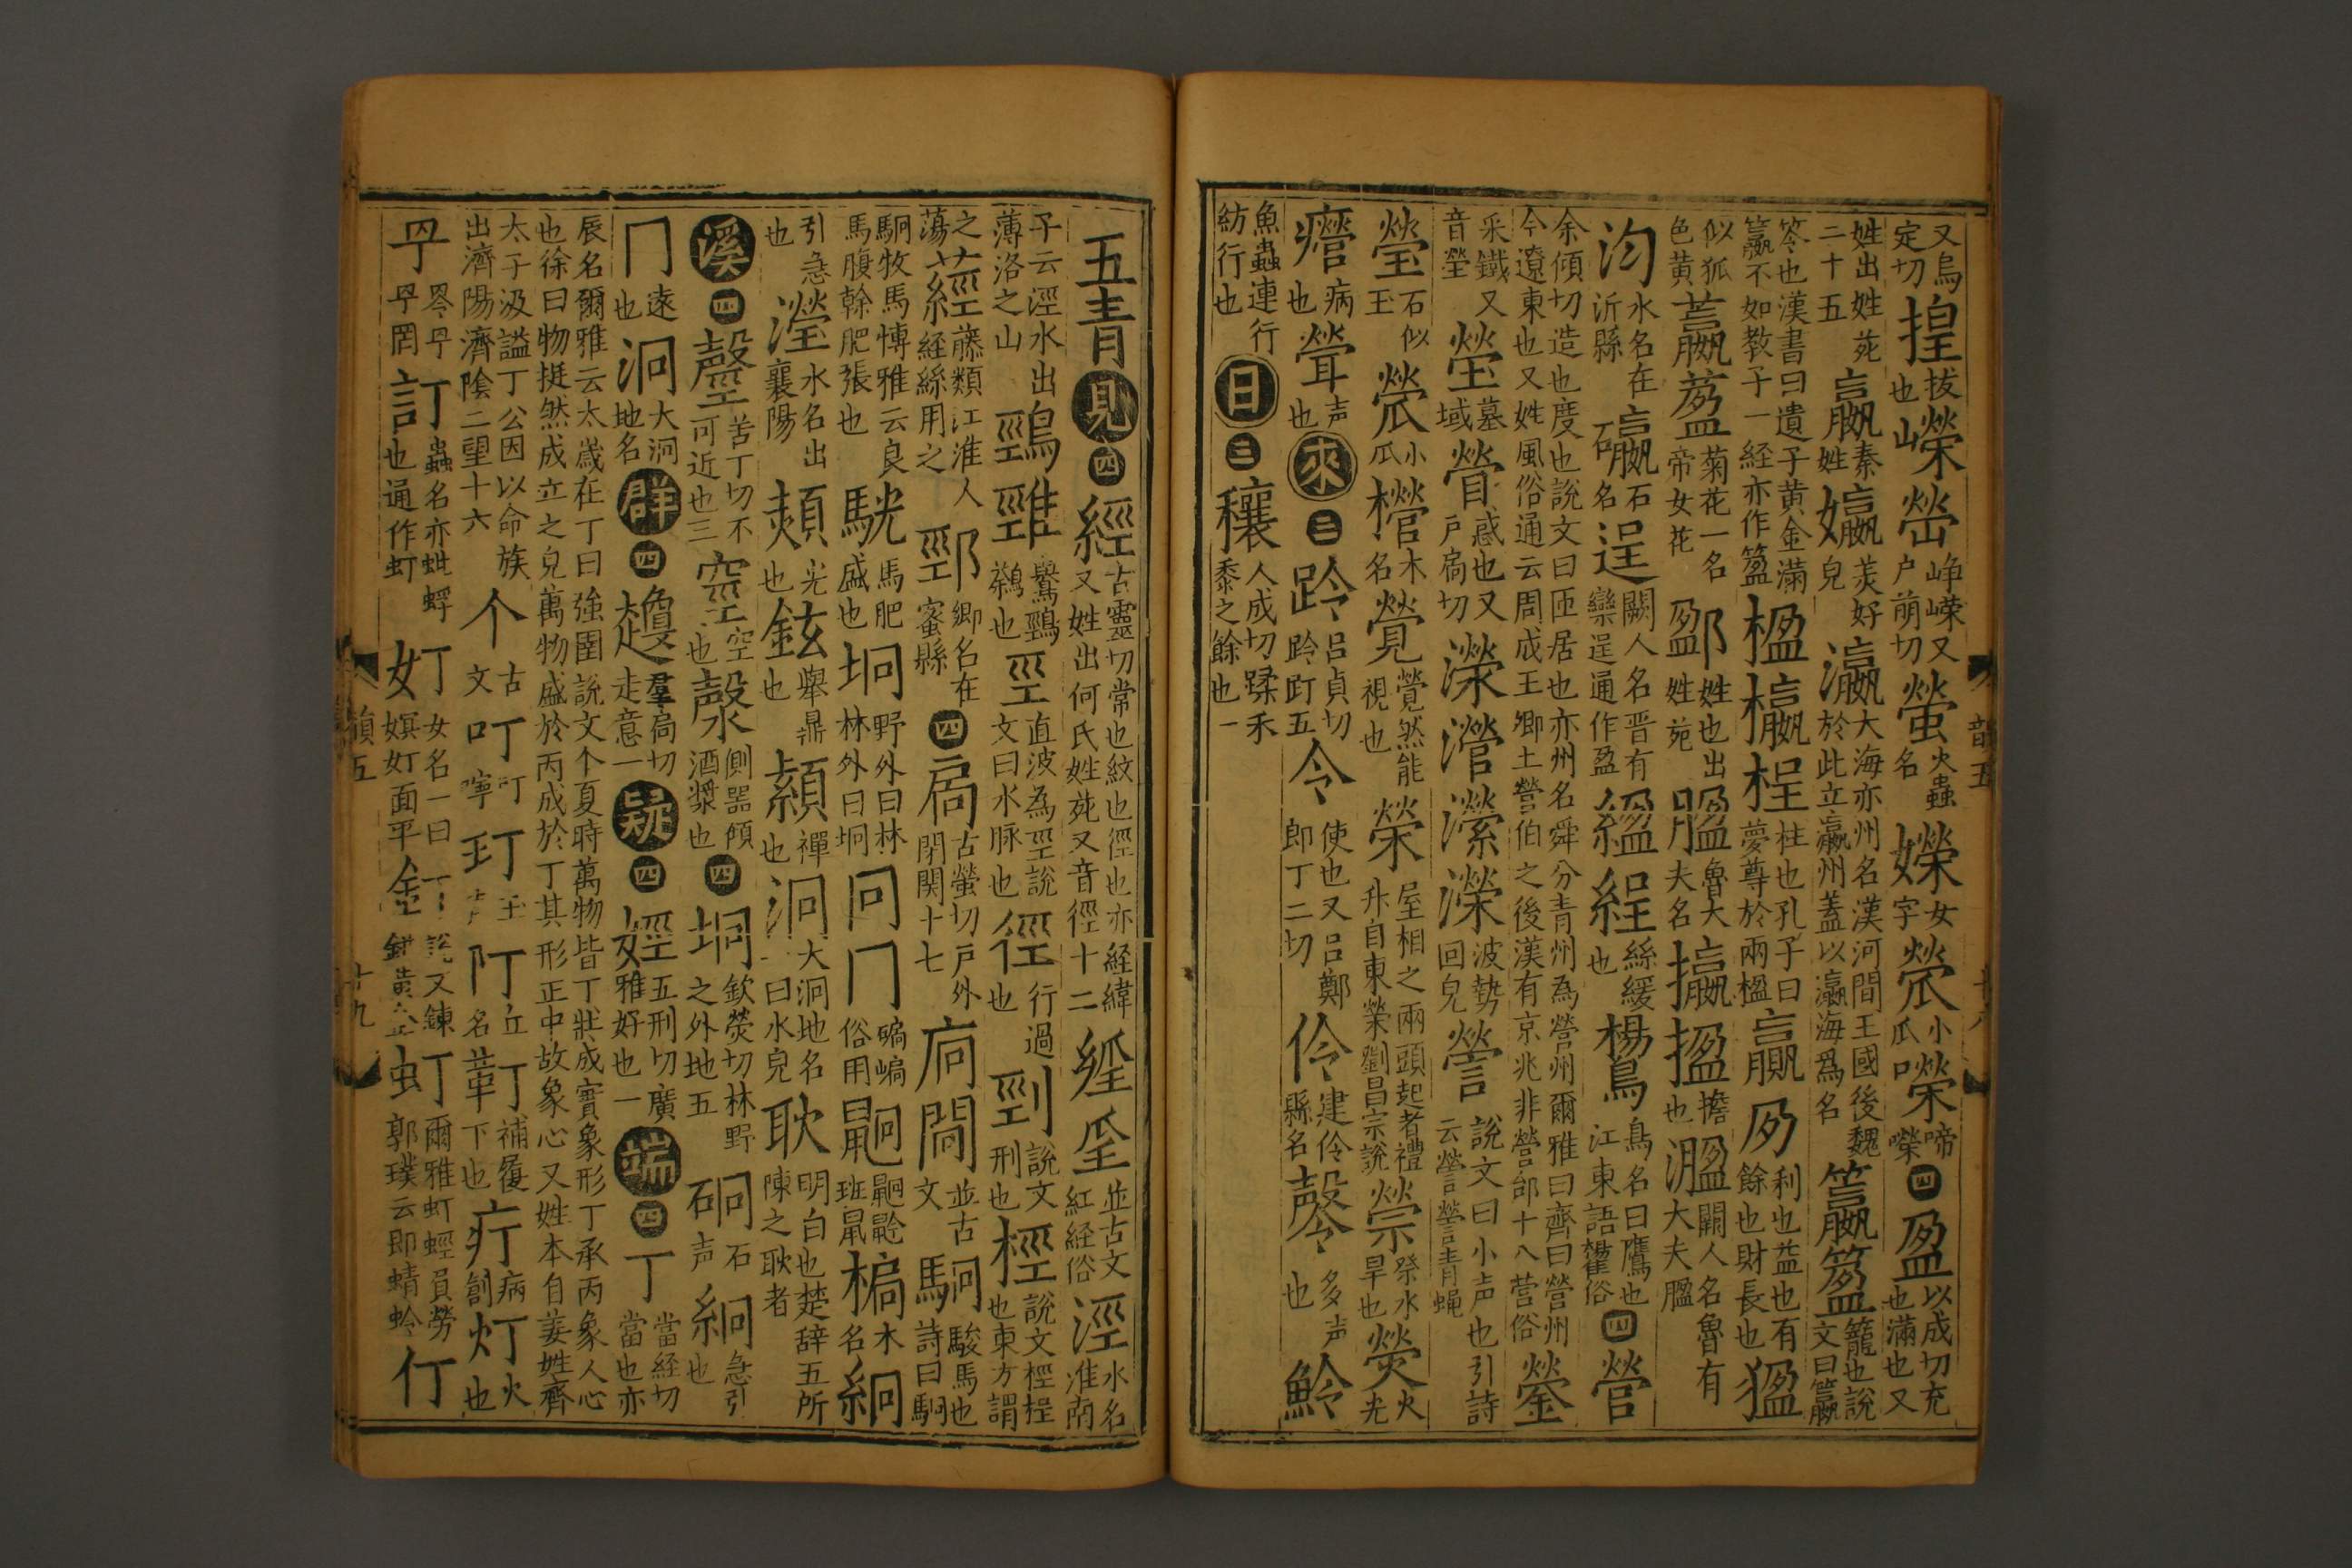 又烏定切揘拔也嶸𡹘峥嶸又户萌切螢火蟲名嬫女字䒬小瓜㘇啼㘇四盈以成切充也滿也又
姓出姓苑二十五嬴秦姓㜲美好皃瀛大海亦州名漢河間王國後魏於此立瀛州蓋以瀛海爲名籯䇦籠也說文曰籯
笭也漢書曰遺子黄金滿籯不如教子一経亦作䇦楹𣟅桯柱也孔子曰夢尊於兩楹贏夃利也益也有餘也財長也㹵
似狐色黄蠃菊花一名帝女花姓也出姓苑魯大夫名攍擔也闞人名魯有大夫
沟水名在沂縣石名逞闕人名晋有欒逞通作盈縕絲緩也鳥名曰鷹也江東語俗四營
余傾切造也度也說文曰匝居也亦州名舜分青州為營州爾雅曰齊曰營州今遼東也又姓風俗通云周成王卿士營伯之後漢有京兆非營郃十八营俗鎣
采鐵又音瑩塋墓域䁝惑也又户扃切濴瀯瀠濚波势回皃謍說文曰小声也引詩云營營青蝇
瑩石似玉䒬小瓜櫿木名覮覮然能視也榮屋相之兩頭起者禮升自東榮劉昌宗說禜祭水旱也熒火光
癊病也聲声也來三跉呂貞切跉䟓五令使也又呂鄭郎丁二切伶建伶縣名多声也魿
魚蟲連行紡行也日三穰人成切蹂禾黍之餘也一
五青見四經古靈切常也絞也徑也亦経緯又姓出何氏姓苑又音徑十二經巠並古文紅経俗涇水名淮南
子云涇水出薄洛之山鵛䳟鸄鵛鶨也巠直波為巠說文曰水脉也徑行過也剄說文刑也桱說文桱桯也東方謂
之蕩莖藤類江淮人経絲用之郠鄉名在蜜縣四扃古螢切戸外閉関十七㢠䦷並古文駉駿馬也詩曰駉
駉牧馬愽雅云良馬腹幹肥張也駫馬肥盛也坰野外曰林林外曰坰冋冂碥㠋俗用鼼班鼠楄木名絅
引急也瀅水名出襄陽熲光也鉉舉鼎也䌹禪也泂大泂地名曰水皃耿明白也楚辞五所陳之耿者
溪四罄苦丁切不可近也三窒空也漀側器傾酒漿也四坰欽熒切林野之外地五硐石声絅急引也
冂遠也泂大泂地名群四䠗羣扃切走意一疑四娙五刑切廣雅好也一端四丁當経切當也亦
辰名爾雅云太嵗在丁曰強圉說文个夏時萬物皆丁壯成實象形丁承丙象人心也徐曰物挺然成立之皃萬物盛於丙成於丁其形正中故象心又姓本自姜姓齊
太子汲謚丁公因以命族出濟陽濟隂二望十六个古文叮叮嚀玎玉声阠丘名靪補履下也疔病創灯火也
罖罖䍓罔訂蟲名亦虰蛏也通作虰奵女名一曰嫇奵面平釘說文鍊鉼黄金虰爾雅虰蛵負勞郭璞云即蜻蛉仃